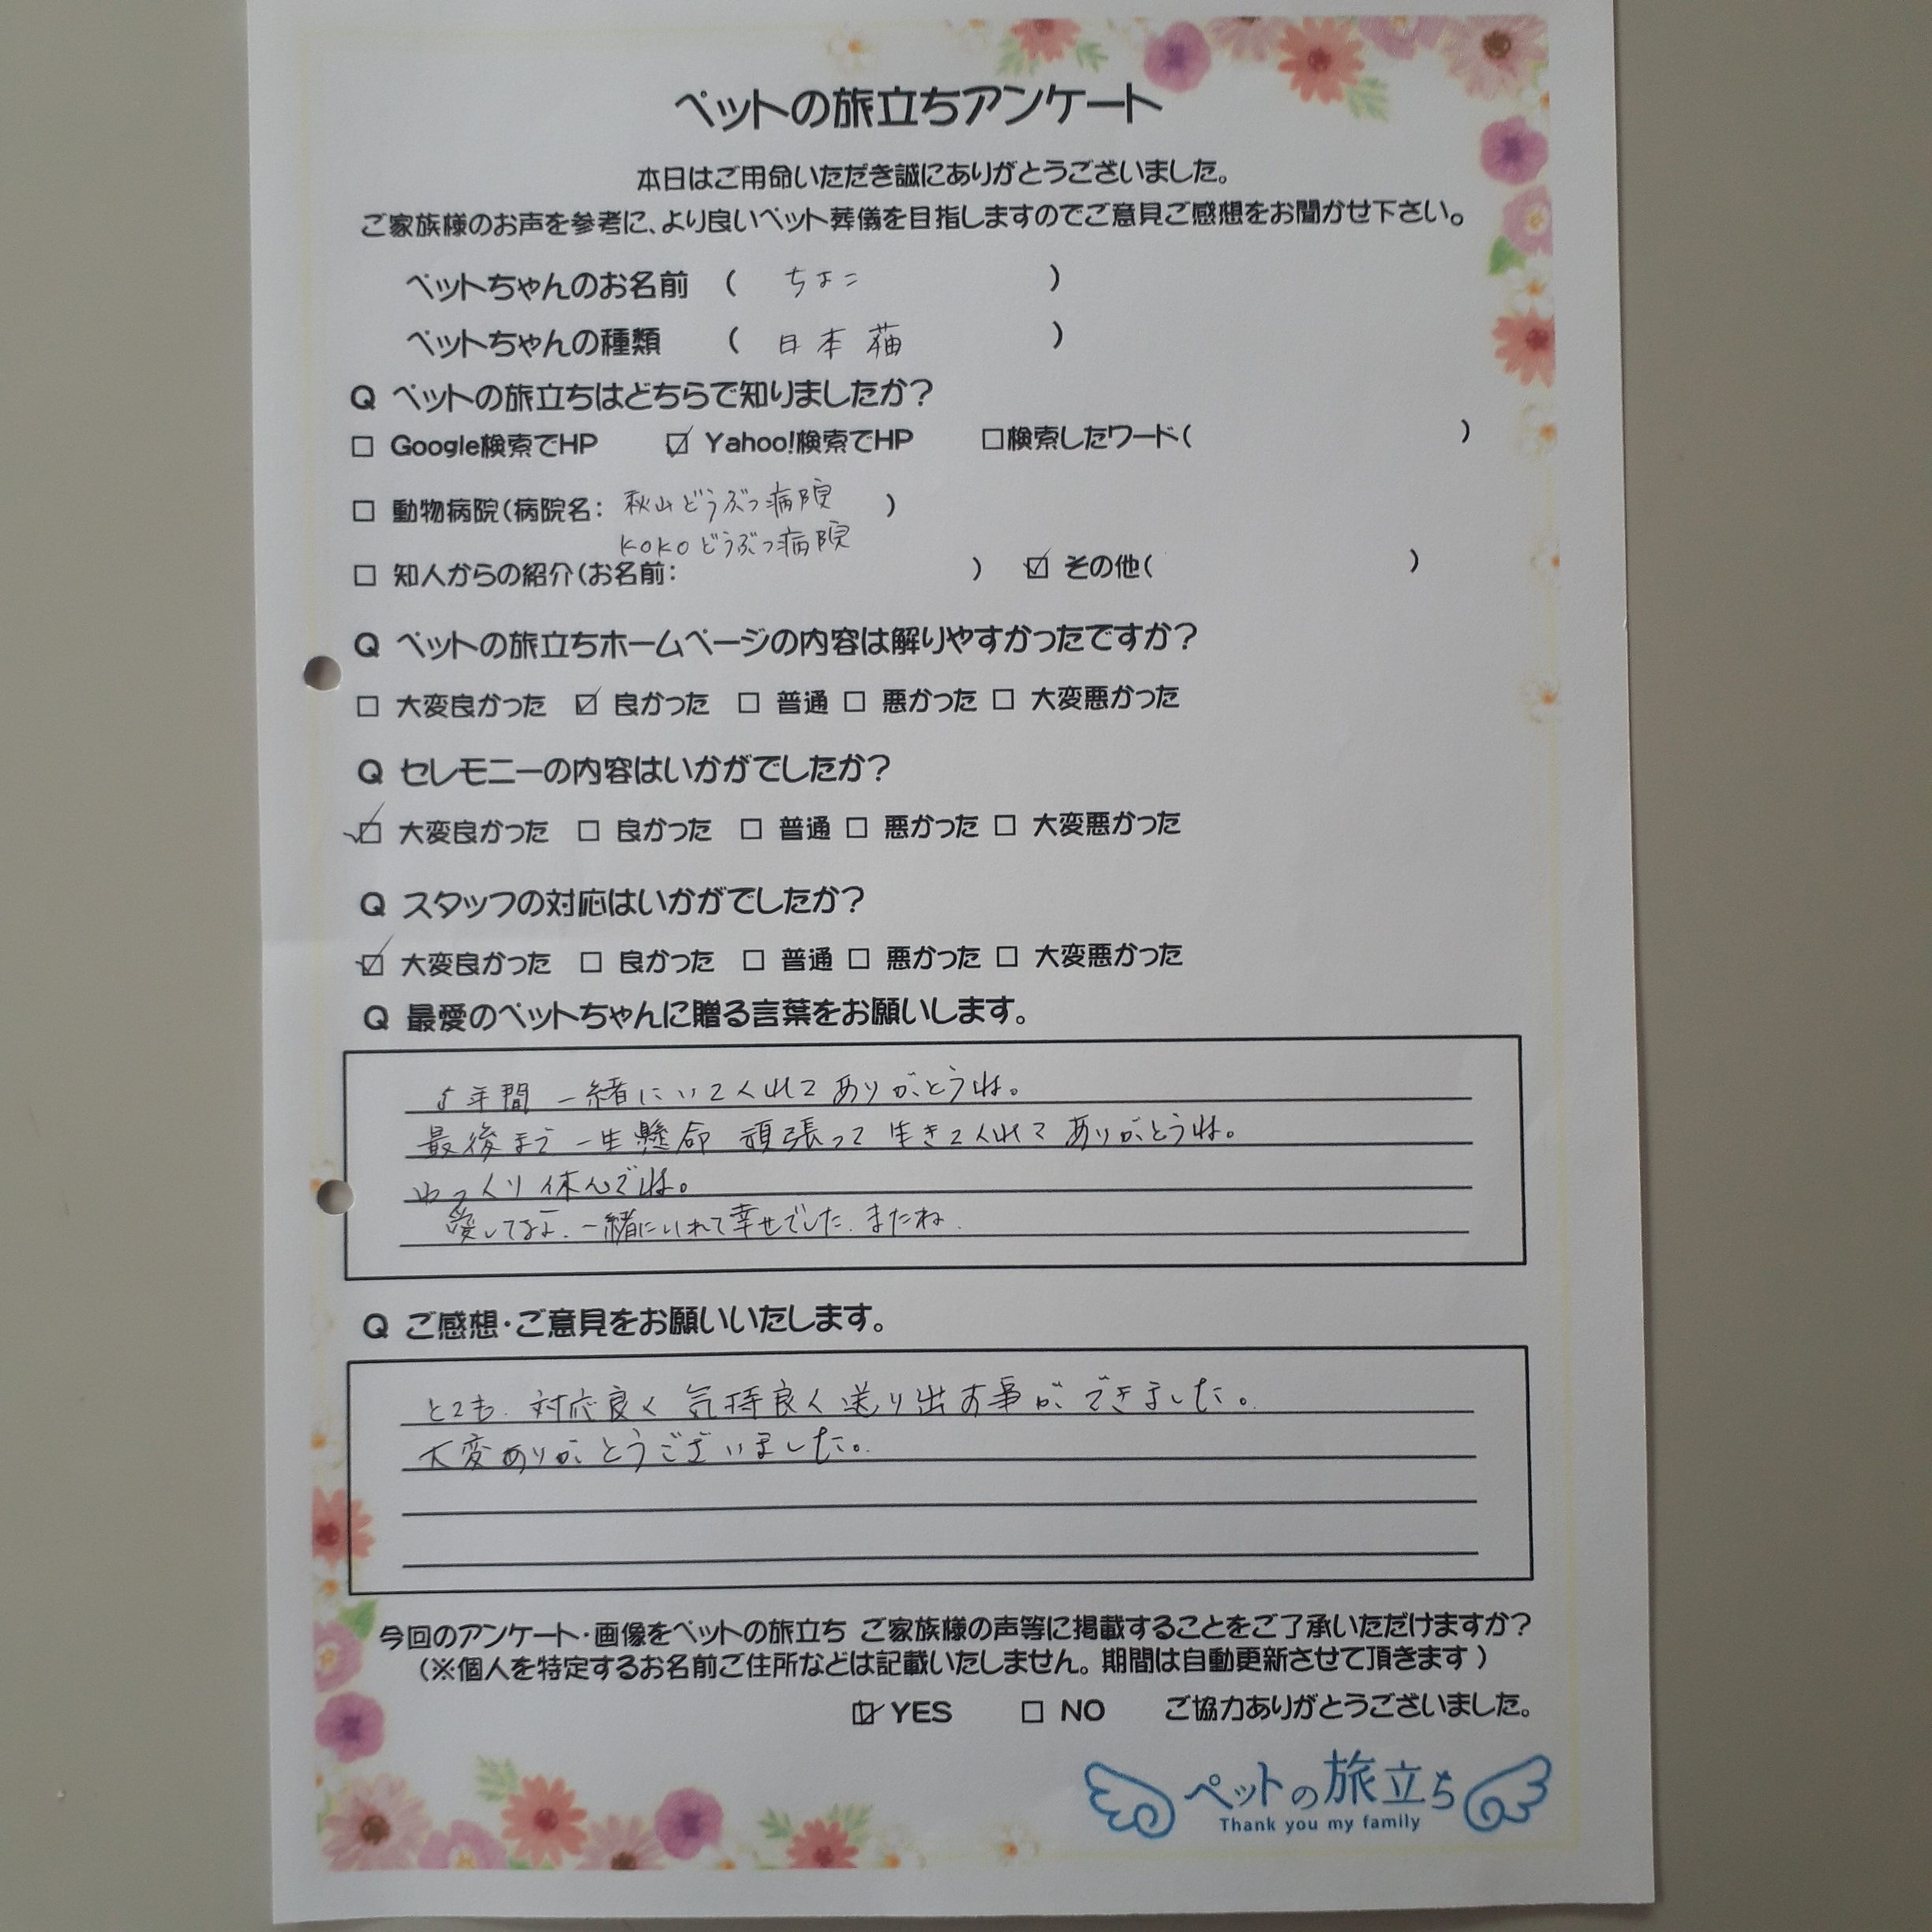 ペットの旅立ちアンケート
本日はご用命いただき誠にありがとうございました。
ご家族様のお声を参考に、より良いペット葬儀を目指しますのでご意見ご感想をお聞かせ下さい。
ペットちゃんのお名前 ( ちょこ )
ペットちゃんの種類 ( 日本猫 )
Q ペットの旅立ちはどちらで知りましたか?
□ Google検索でHP ☑ Yahoo!検索でHP □検索したワード( )
□ 動物病院(病院名: 秋山どうぶつ病院 )
KOKOどうぶつ病院
□ 知人からの紹介(お名前: ) ☑ その他( )
Q ペットの旅立ちホームページの内容は解りやすかったですか?
□ 大変良かった ☑ 良かった □ 普通 □ 悪かった □ 大変悪かった
Q セレモニーの内容はいかがでしたか?
☑ 大変良かった □ 良かった □ 普通 □ 悪かった □ 大変悪かった
Q スタッフの対応はいかがでしたか?
☑ 大変良かった □ 良かった □ 普通 □ 悪かった □ 大変悪かった
Q 最愛のペットちゃんに贈る言葉をお願いします。
5年間 一緒にいてくれて ありがとうね。
最後まで 一生懸命 頑張って 生きてくれて ありがとうね。
ゆっくり休んでね。
愛してるよ. 一緒にいれて幸せでした. またね.
Q ご感想・ご意見をお願いいたします。
とても 対応良く 気持良く 送り出す事が できました。
大変ありがとうございました。
今回のアンケート・画像をペットの旅立ち ご家族様の声等に掲載することをご了承いただけますか?
(※個人を特定するお名前ご住所などは記載いたしません。期間は自動更新させて頂きます)
☑ YES □ NO ご協力ありがとうございました。
ペットの旅立ち
Thank you my family